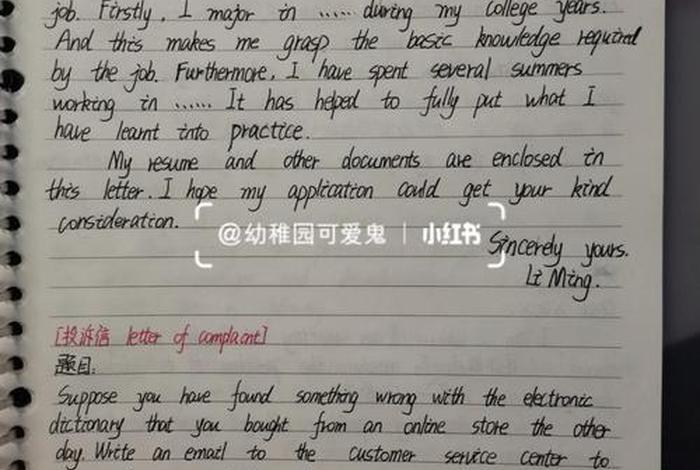 job. Firstly, I major in ...... during my college years.
And this makes me grasp the basic knowledge required
by the job. Furthermore, I have spent several summers
working in ...... It has helped to fully put what I
have learnt into practice.
My resume and other documents are enclosed in
this letter. I hope my application could get your kind
consideration.
@幼稚园可爱鬼 | 小红书
Sincerely yours.
Li Ming.
[投诉信 letter of complaint]
题目:
Suppose you have found something wrong with the electronic
dictionary that you bought from an online store the other
day. Write an email to the customer service center to